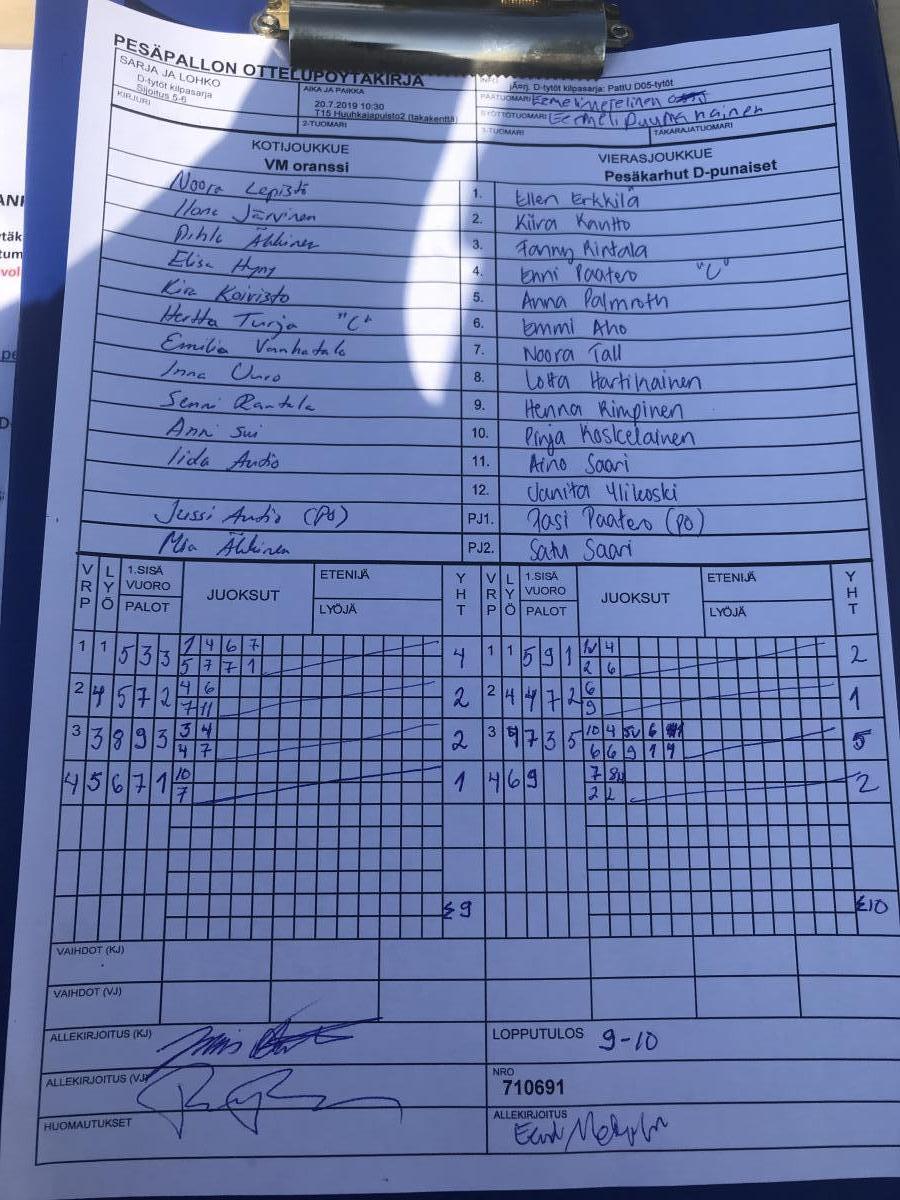 PESÄPALLON OTTELUPÖYTÄKIRJA
SARJA JA LOHKO
D-tytöt kilpasarja
Sijoitus 5-6
AIKA JA PAIKKA
20.7.2019 10:30
T15 Huuhkajapuisto2 (takakenttä)
INFO
Järj. D-tytöt kilpasarja: PattU D05-tytöt
PÄÄTUOMARI
SYÖTTÖTUOMARI Eemeli Puumanainen
KIRJURI
2-TUOMARI
3-TUOMARI
TAKARAJATUOMARI
KOTIJOUKKUE
VM oranssi
VIERASJOUKKUE
Pesäkarhut D-punaiset
Noora Lepistö 1. Ellen Erkkilä
Ilona Järvinen 2. Kiira Kautto
Pihla Ähkinen 3. Fanny Rintala
Elisa 4. Enni Paatero "C"
Kira Koivisto 5. Anna Palmroth
Hertta Turja "C" 6. Emmi Aho
Emilia Vanhatalo 7. Noora Tall
Inna Uuro 8. Lotta Hartikainen
Senni Rantala 9. Henna Rimpinen
Anni Sui 10. Pinja Koskelainen
Iida Autio 11. Aino Saari
12. Janita Ylikoski
Jussi Autio (PO) PJ1. Pasi Paatero (PO)
Mia Ähkinen PJ2. Satu Saari
VRP LYÖ 1.SISÄ VUORO PALOT JUOKSUT ETENIJÄ LYÖJÄ YHT VRP LYÖ 1.SISÄ VUORO PALOT JUOKSUT ETENIJÄ LYÖJÄ YHT
1 4 6 7 4
1 1 5 3 3 4 1 1 5 9 1 2
5 7 7 1 2 6
4 6 6
2 4 5 7 2 2 2 4 4 7 2 1
7 11 9
3 4 10 4 5v 6
3 3 8 9 3 2 3 7 3 5 5
4 7 6 6 9 1 4
10 7
4 5 6 7 1 1 4 6 9 2
7 2
Σ9 Σ10
VAIHDOT (KJ)
VAIHDOT (VJ)
ALLEKIRJOITUS (KJ)
LOPPUTULOS 9-10
ALLEKIRJOITUS (VJ)
NRO
710691
HUOMAUTUKSET
ALLEKIRJOITUS